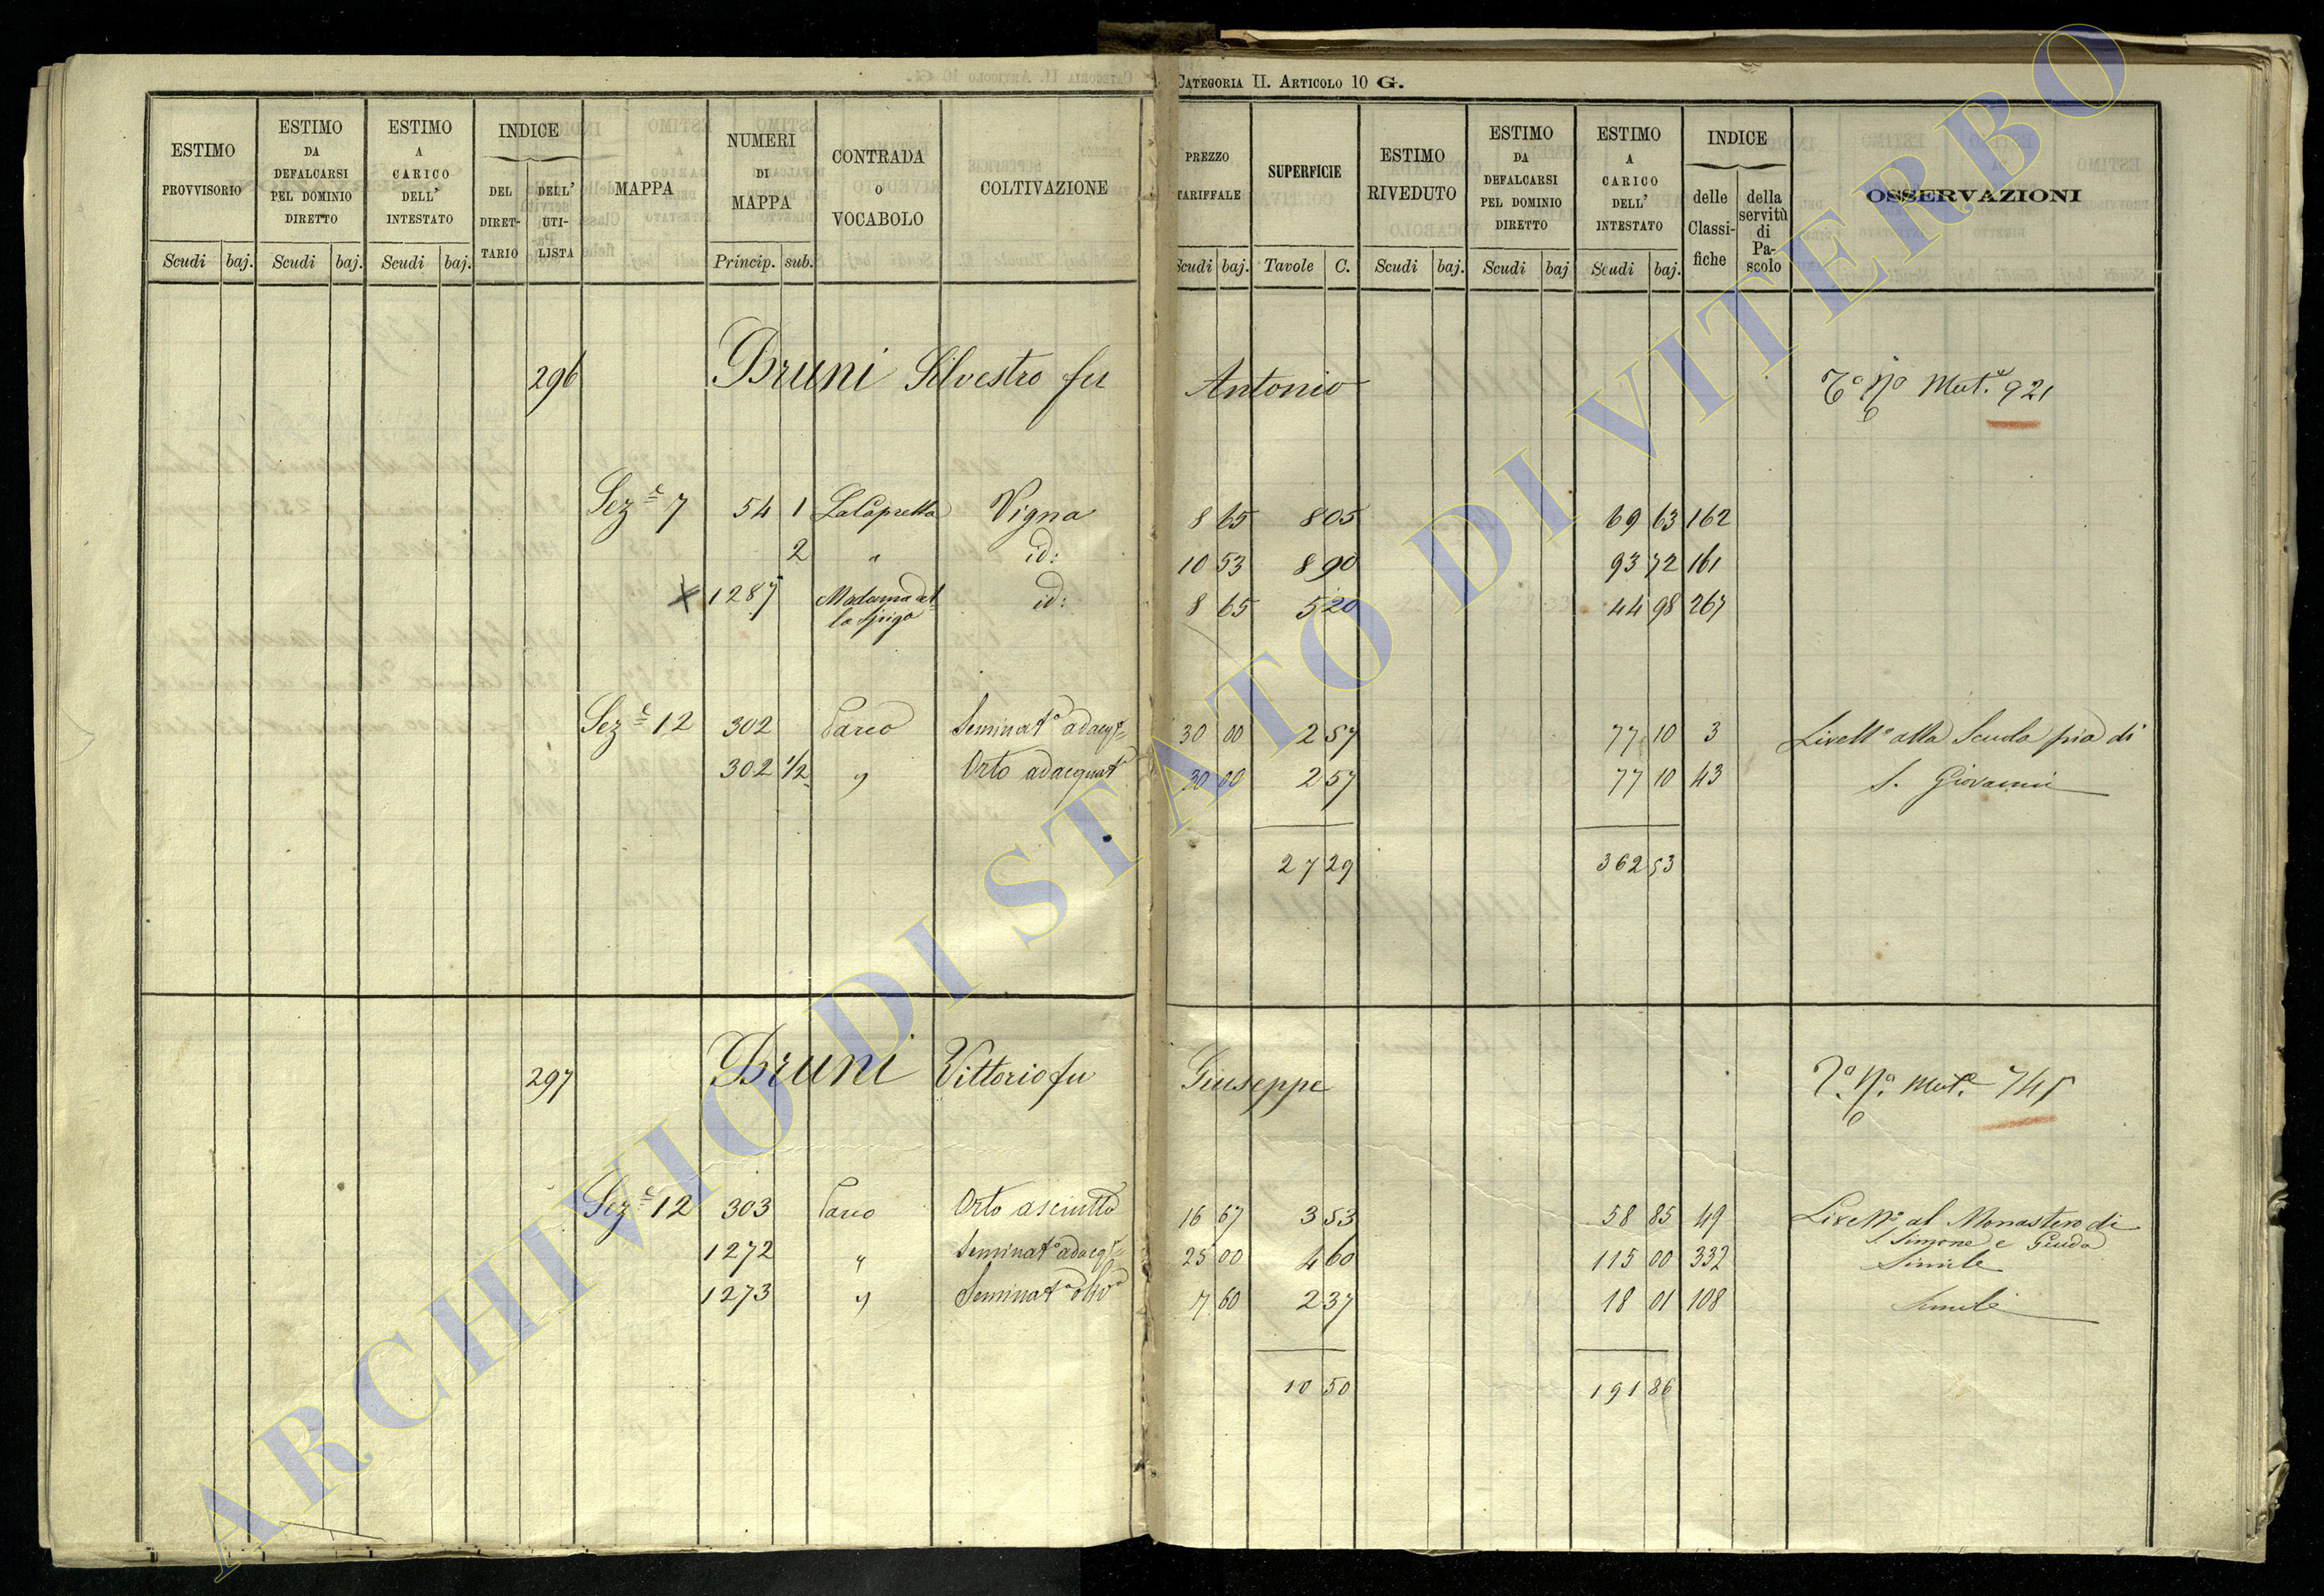 CATEGORIA II. ARTICOLO 10 G.
ESTIMO PROVVISORIO | ESTIMO DA DEFALCARSI PEL DOMINIO DIRETTO | ESTIMO A CARICO DELL' INTESTATO | INDICE | MAPPA | NUMERI DI MAPPA | CONTRADA O VOCABOLO | COLTIVAZIONE | PREZZO TARIFFALE | SUPERFICIE | ESTIMO RIVEDUTO | ESTIMO DA DEFALCARSI PEL DOMINIO DIRETTO | ESTIMO A CARICO DELL' INTESTATO | INDICE | OSSERVAZIONI
DEL DIRETTARIO | DELL' UTILISTA | delle Classifiche | della servitù di Pascolo
Scudi baj. Scudi baj. Scudi baj. Princip. sub. Scudi baj. Tavole C. Scudi baj. Scudi baj Scudi baj.
296 Bruni Silvestro fu Antonio Mut.e 921
Sez.e 7 54 1 La Capretta Vigna 8 65 8 05 69 63 162
2 " id: 10 53 8 90 93 72 161
x 1287 Madonna del 
la Spiga id: 8 65 5 20 44 98 267
Sez.e 12 302 Parco Seminat.o adacq.o 30 00 2 57 77 10 3 Livell.o alla Scuola pia di
302 1/2 " Orto adacquat.o 30 00 2 57 77 10 43 S. Giovanni
27 29 362 53
297 Bruni Vittorio fu Giuseppe Mut.e 745
Sez.e 12 303 Parco Orto asciutto 16 67 3 53 58 85 49 Livell.o al Monastero di
S. Simone e Giuda
1272 " Seminat.o adacq.o 25 00 4 60 115 00 332 Simile
1273 " Seminat.o oliv.o 7 60 2 37 18 01 108 Simile
10 50 191 86
ARCHIVIO DI STATO DI VITERBO